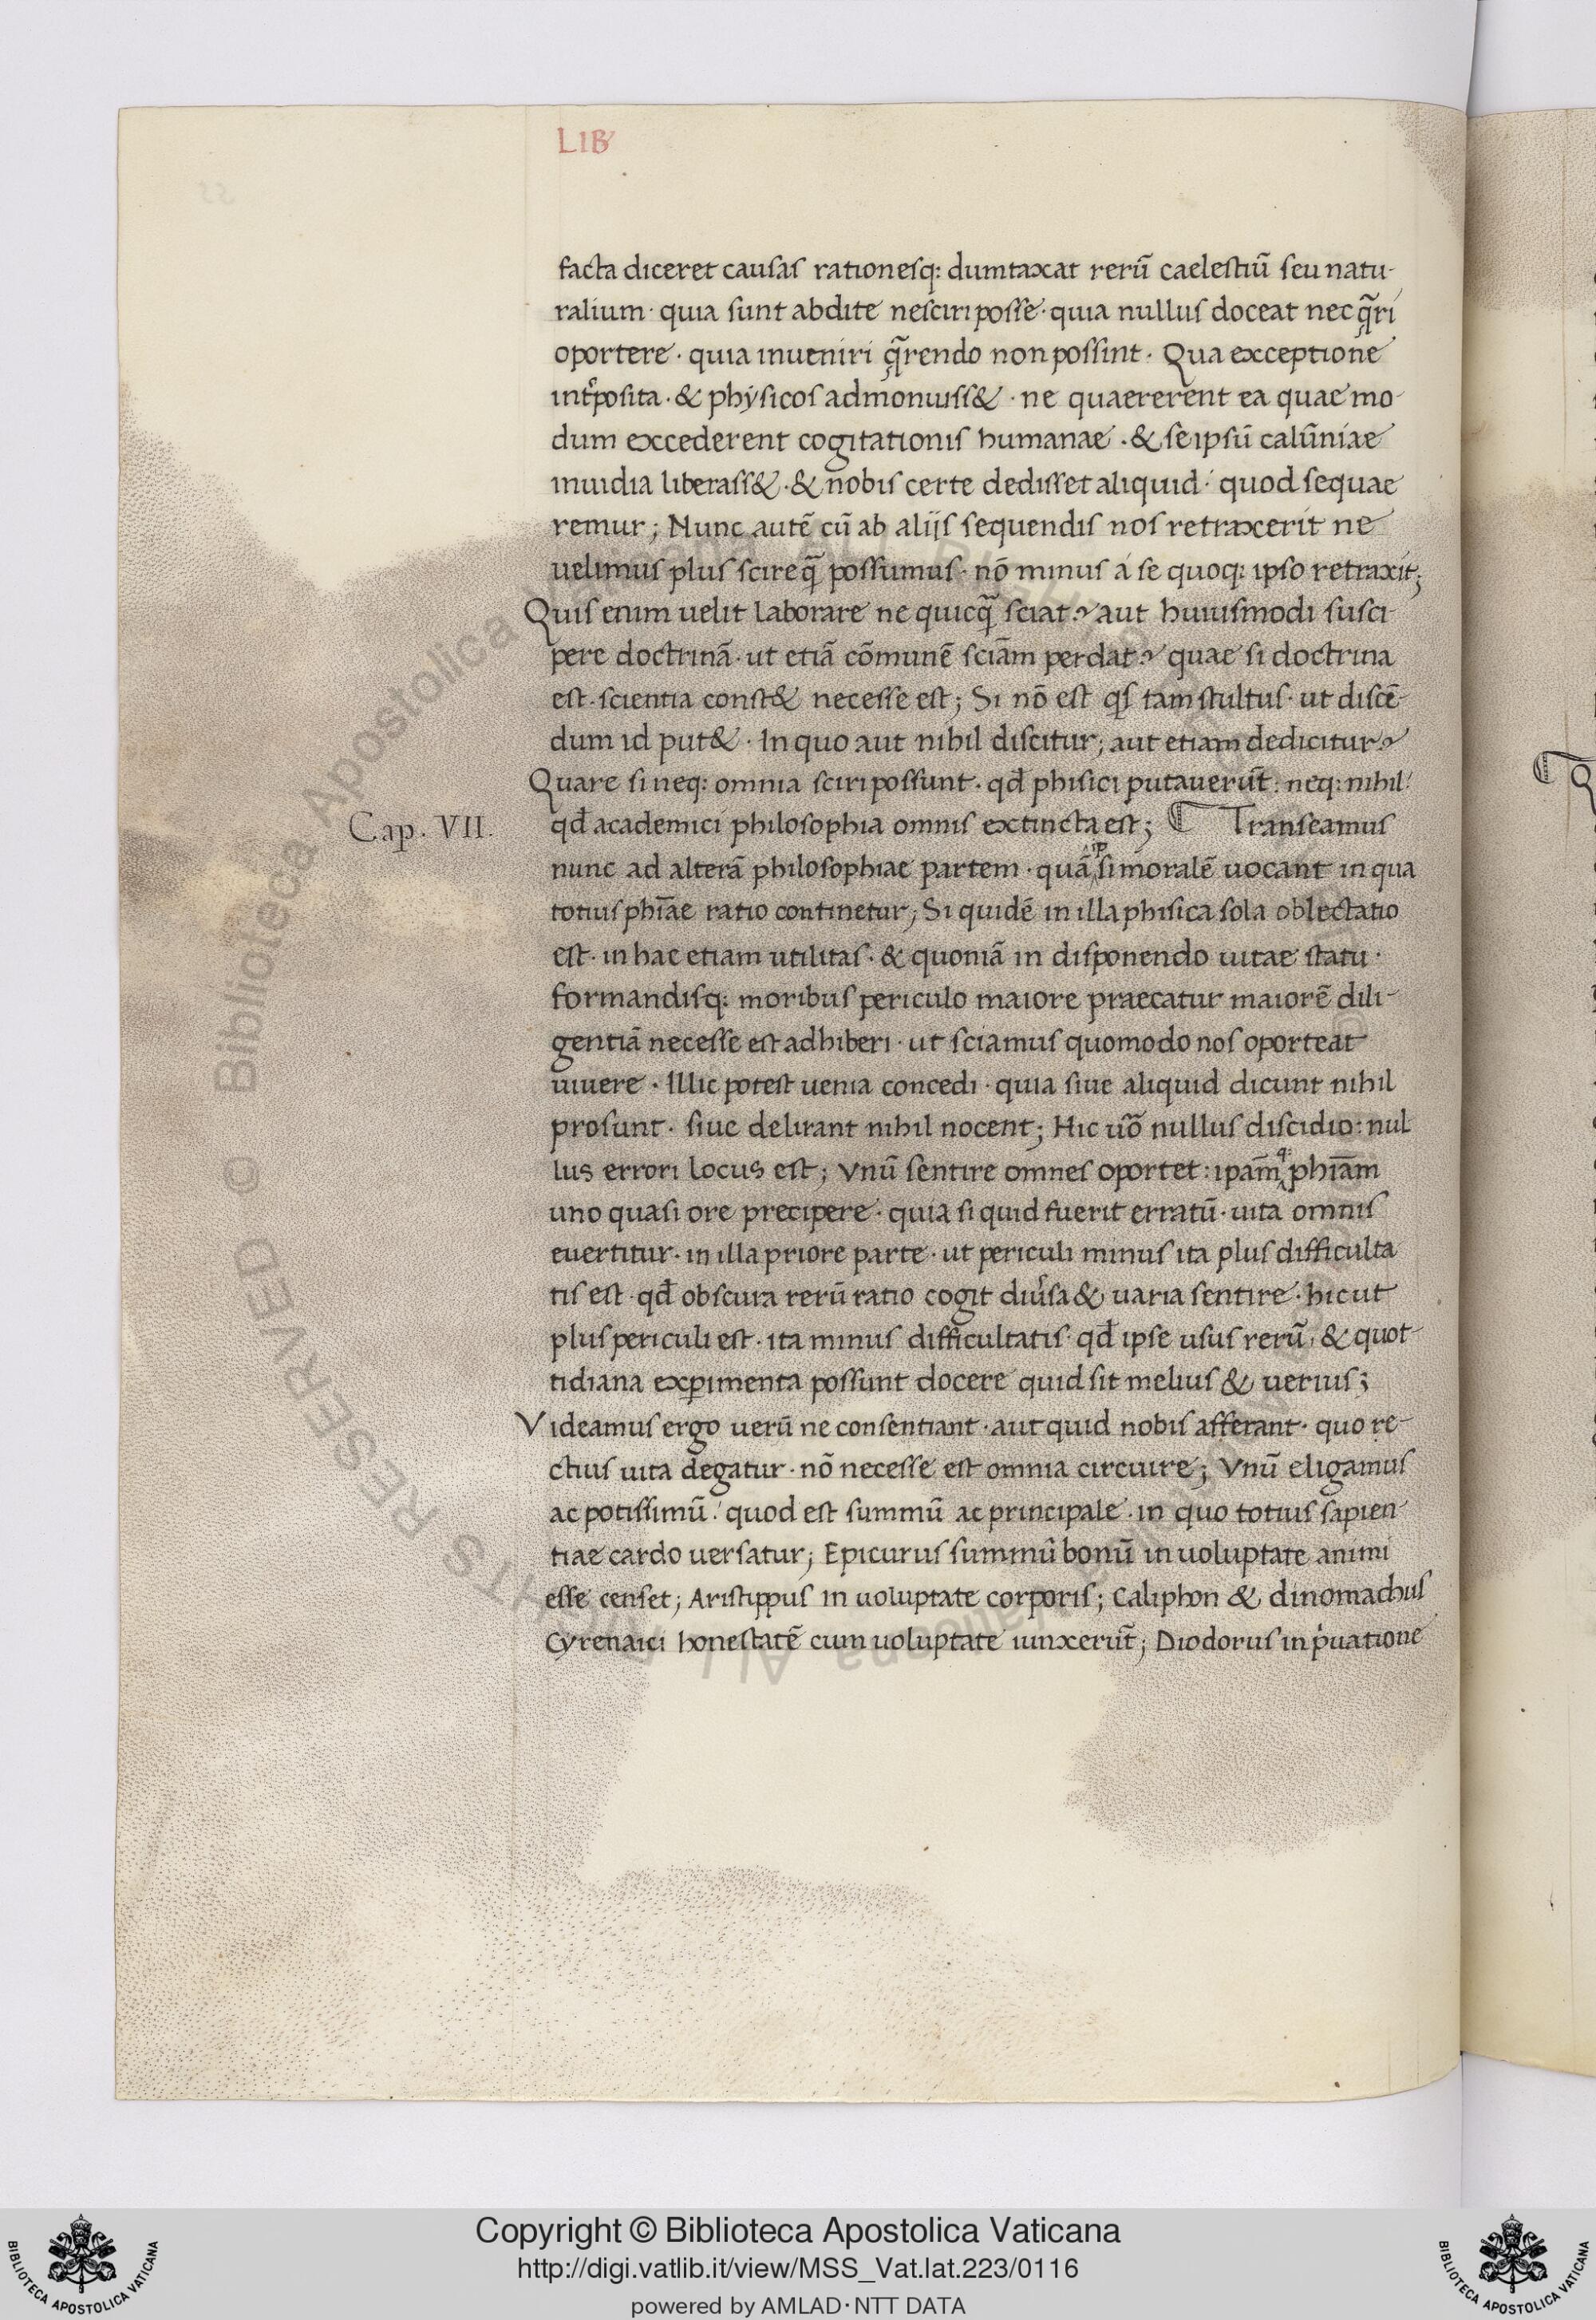 LIB
facta diceret causas rationesq: dumtaxat rerū caelestiū seu natu-
ralium· quia sunt abdite nesciri posse· quia nullus doceat nec q̄ri
oportere· quia inueniri q̄rendo non possint· Qua exceptione
int̉posita· & physicos admonuiss&· ne quaererent ea quae mo-
dum excederent cogitationis humanae· & se ipsū calūniae
inuidia liberass&· & nobis certe dedisset aliquid· quod sequae
remur; Nunc autē cū ab alijs sequendis nos retraxerit ne
uelimus plus scire q̄ possumus· nō minus á se quoq: ipso retraxit;
Quis enim uelit laborare ne quicq̄ sciat? aut huiusmodi susci-
pere doctrinā· ut etiā cōmunē sciām perdat? quae si doctrina
est· scientia const& necesse est; Si nō est qs tam stultus· ut discē-
dum id put&· In quo aut nihil discitur; aut etiam dedicitur?
Quare si neq: omnia sciri possunt· qd̄ phisici putauerūt: neq: nihil:
Cap. VII.
qd̄ academici philosophia omnis extincta est; ₵ Transeamus
nunc ad alterā philosophiae partem· quā ipsi moralē uocant in qua
totius phīae ratio continetur; Si quidē in illa phisica sola oblectatio
est· in hac etiam utilitas· & quoniā in disponendo uitae statu·
formandisq: moribus periculo maiore praecatur maiorē dili-
gentiā necesse est adhiberi· ut sciamus quomodo nos oporteat
uiuere· Illic potest uenia concedi· quia siue aliquid dicunt nihil
prosunt· siue delirant nihil nocent; Hic uō nullus discidio: nul
lus errori locus est; Vnū sentire omnes oportet: ipām q: phīam
uno quasi ore precipere· quia si quid fuerit erratū· uita omnis
euertitur· in illa priore parte· ut periculi minus ita plus difficulta
tis est· qd̄ obscura rerū ratio cogit diu̓sa & uaria sentire· hic ut
plus periculi est· ita minus difficultatis· qd̄ ipse usus rerū, & quot-
tidiana exꝑimenta possunt docere quid sit melius & uerius;
Videamus ergo uerū ne consentiant· aut quid nobis afferant· quo re-
ctius uita degatur· nō necesse est omnia circuire; Vnū eligamus
ac potissimū· quod est summū ac principale· in quo totius sapien-
tiae cardo uersatur; Epicurus summū bonū in uoluptate animi
esse censet; Aristippus in uoluptate corporis; Caliphon & dinomachus
Cyrenaici honestatē cum uoluptate iunxerūt; Diodorus in p̍uatione
Copyright © Biblioteca Apostolica Vaticana
http://digi.vatlib.it/view/MSS_Vat.lat.223/0116
powered by AMLAD·NTT DATA
BIBLIOTECA APOSTOLICA VATICANA
BIBLIOTECA APOSTOLICA VATICANA